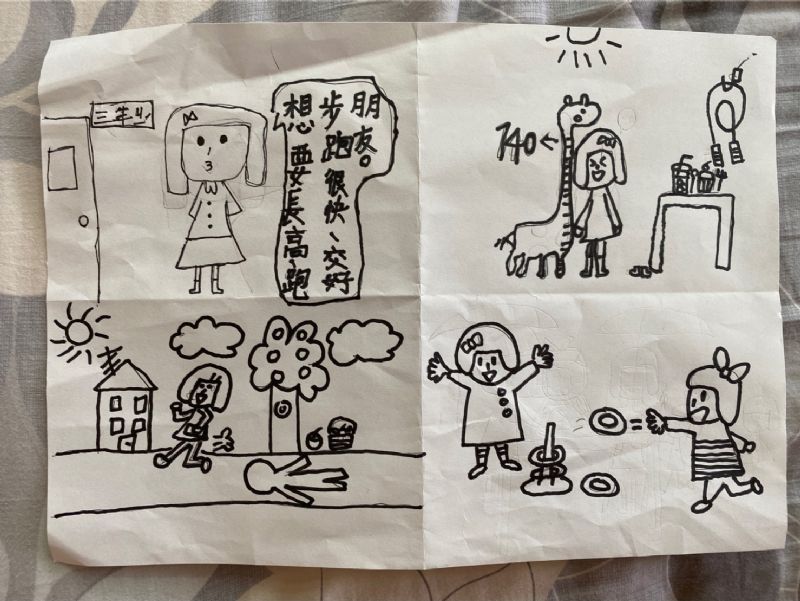 三年
想要長高、跑
步跑很快、交好
朋友。
140